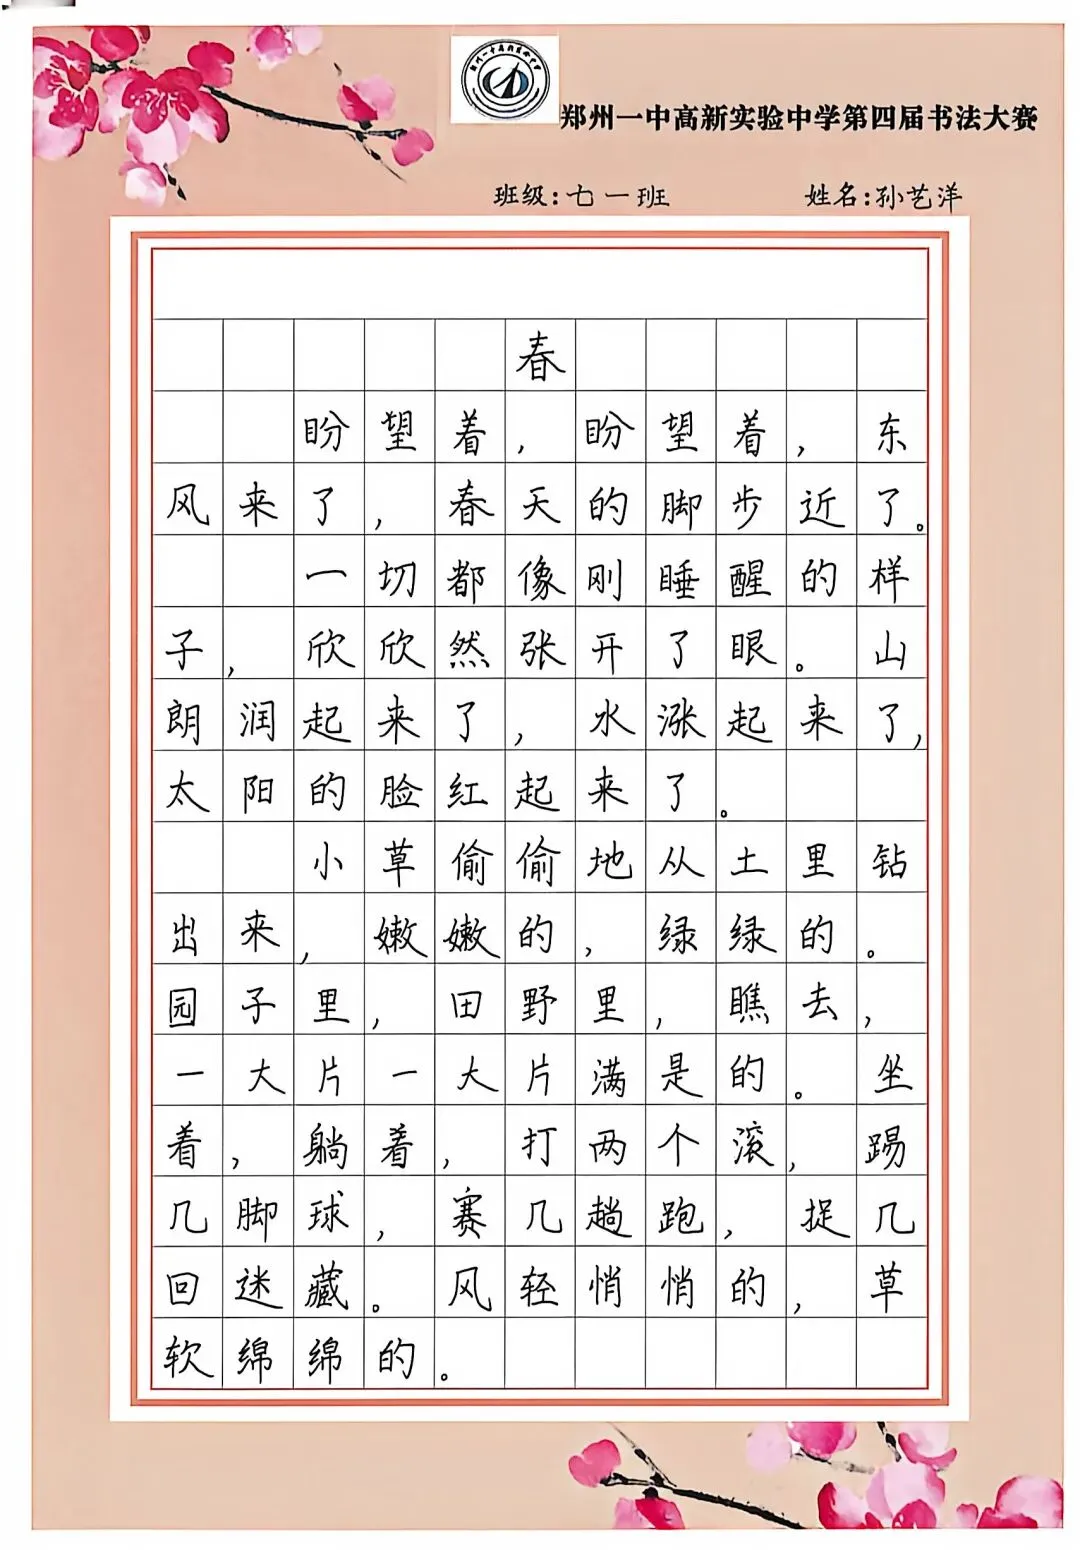 郑州一中高新实验中学第四届书法大赛
班级:七一班 姓名:孙艺洋
春
盼望着,盼望着,东
风来了,春天的脚步近了。
一切都像刚睡醒的样
子,欣欣然张开了眼。山
朗润起来了,水涨起来了,
太阳的脸红起来了。
小草偷偷地从土里钻
出来,嫩嫩的,绿绿的。
园子里,田野里,瞧去,
一大片一大片满是的。坐
着,躺着,打两个滚,踢
几脚球,赛几趟跑,捉几
回迷藏。风轻悄悄的,草
软绵绵的。